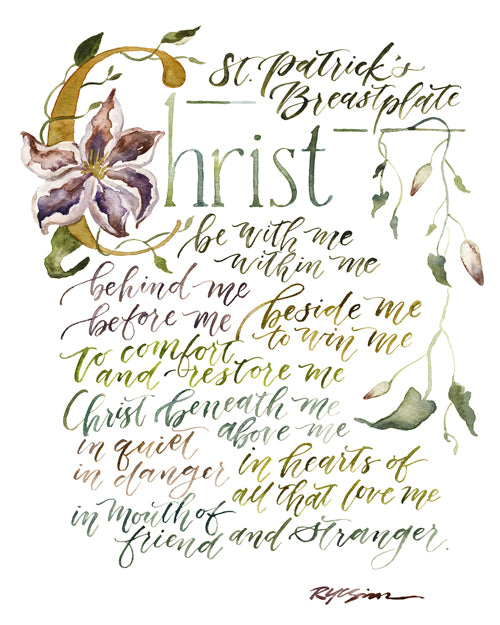 St. Patrick's
Breastplate
Christ
be with me
within me
behind me
before me
beside me
to win me
To comfort
and restore me
Christ beneath me
above me
in quiet
in danger
in hearts of
all that love me
in mouth of
friend and stranger.